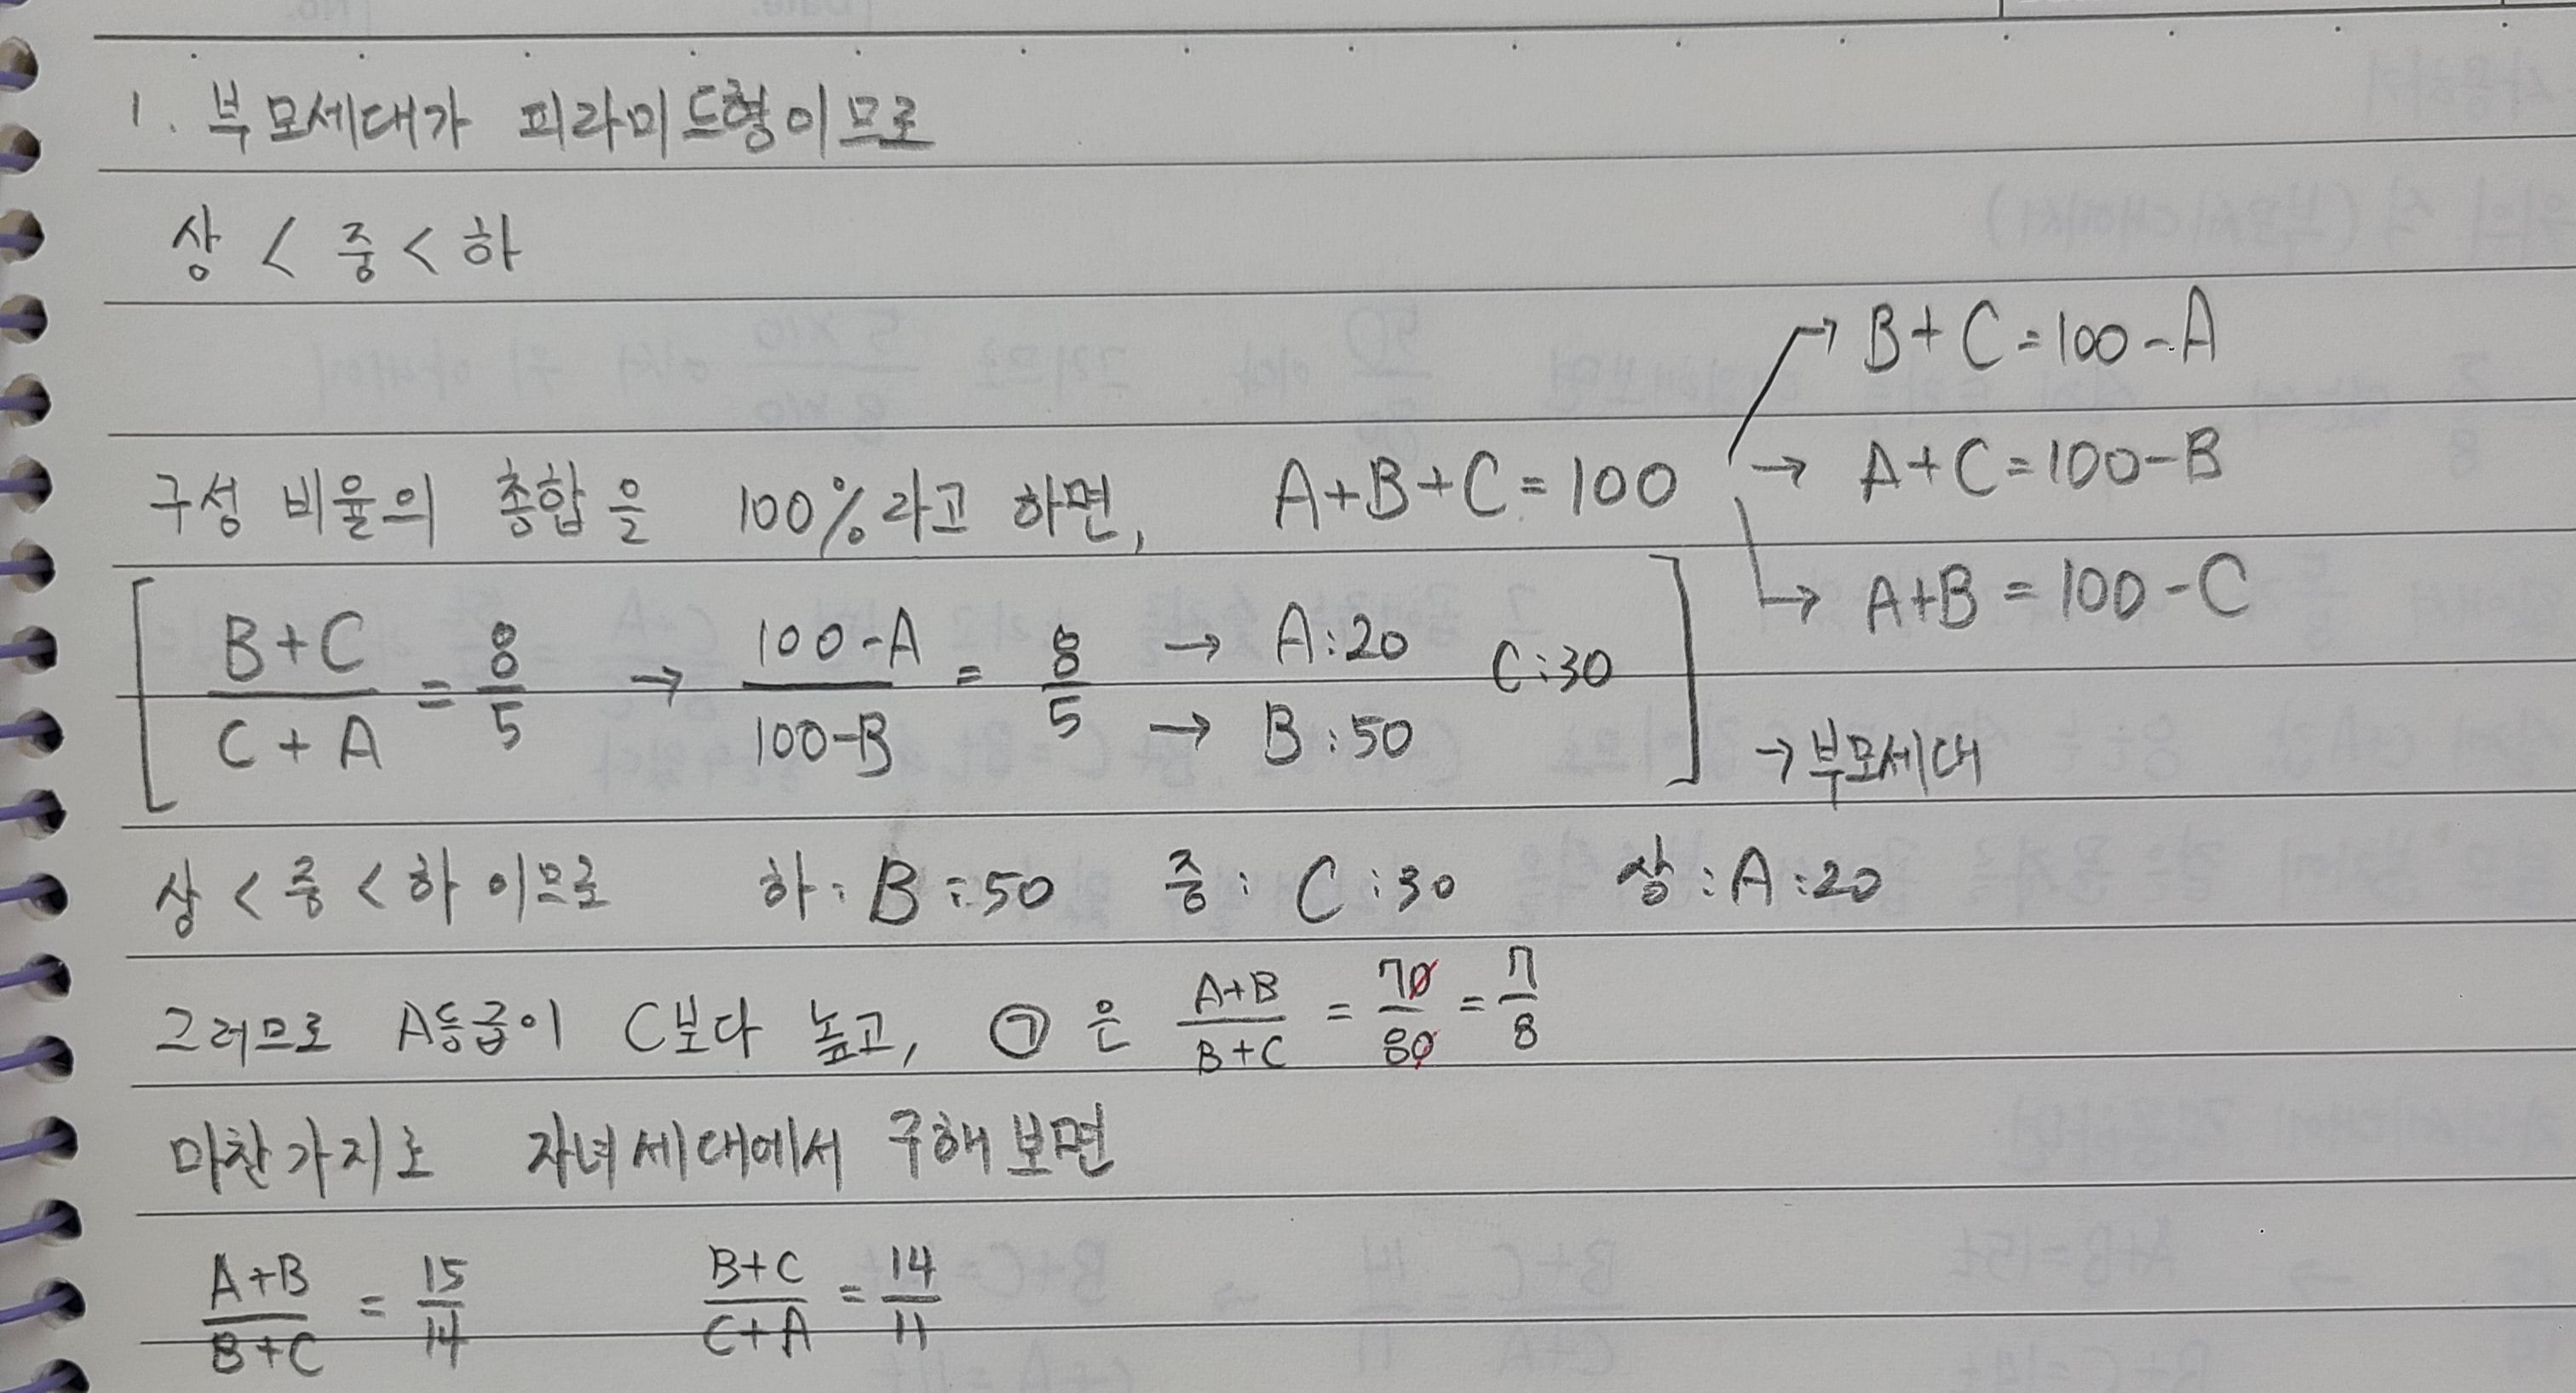 1. 부모세대가 피라미드형이므로
상 < 중 < 하
구성 비율의 총합을 100%라고 하면, A+B+C=100 → B+C=100-A
→ A+C=100-B
→ A+B=100-C
[ B+C/C+A = 8/5 → 100-A/100-B = 8/5 → A:20 → B:50 C:30 ] → 부모세대
상 < 중 < 하 이므로 하:B:50 중:C:30 상:A:20
그러므로 A등급이 C보다 높고, ㉠은 A+B/B+C = 70/80 = 7/8
마찬가지로 자녀세대에서 구해보면
A+B/B+C = 15/14 B+C/C+A = 14/11